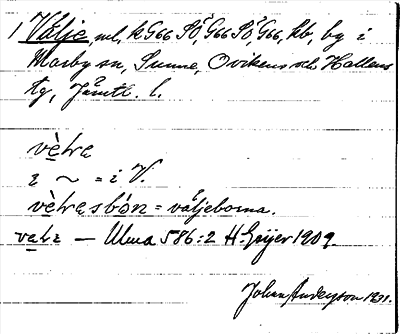 1 Välje, ml, k G66 SÖ, G66 SÖ, G66, hb, by i
Marby sn, Sunne, Ovikens och Hallens
tg, Jämtl. l.
vètra
i ~ = i V.
vètrasbón = väljeborna.
vetr — Ulma 586:2 H. Geijer 1909
Johan Anderson 1931.